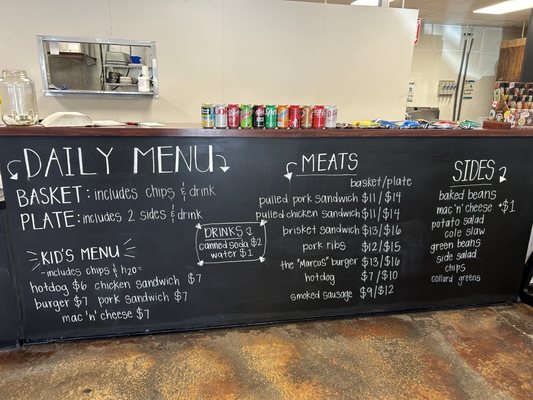 DAILY MENU
BASKET: includes chips & drink
PLATE: includes 2 sides & drink
KID'S MENU
- includes chips & h2o -
hotdog $6 chicken sandwich $7
burger $7 pork sandwich $7
mac 'n' cheese $7
DRINKS
canned soda $2
water $1
MEATS
basket/plate
pulled pork sandwich $11/$14
pulled chicken sandwich $11/$14
brisket sandwich $13/$16
pork ribs $12/$15
the "Marcus" burger $13/$16
hotdog $7/$10
smoked sausage $9/$12
SIDES
baked beans
mac 'n' cheese +$1
potato salad
cole slaw
green beans
side salad
chips
collard greens